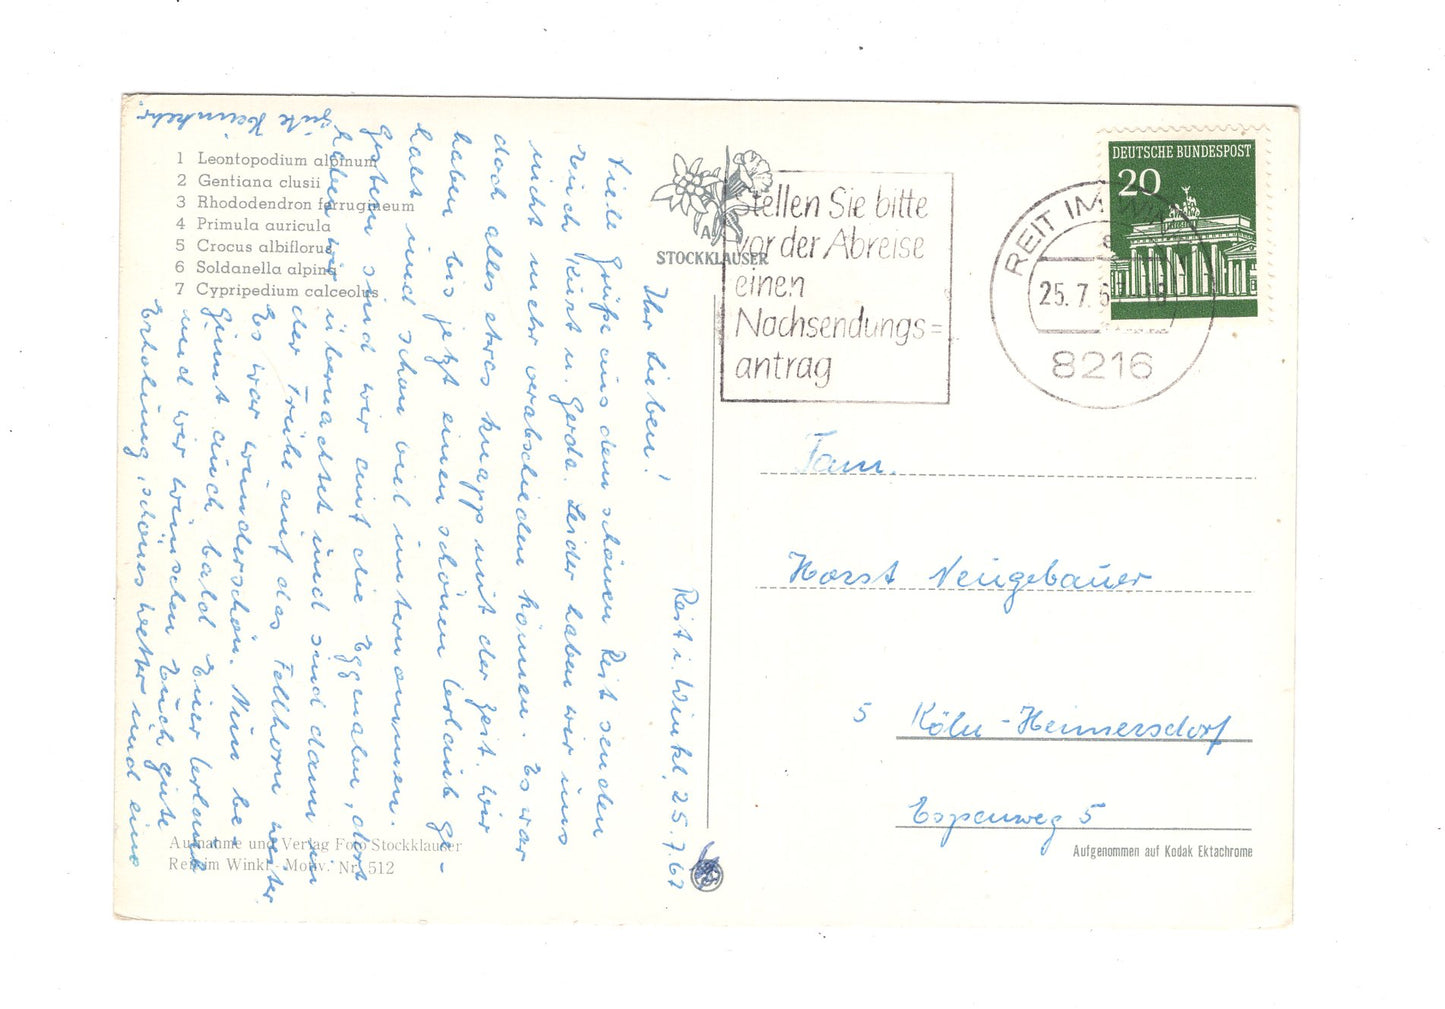 1 Leontopodium alpinum
2 Gentiana clusii
3 Rhododendron ferrugineum
4 Primula auricula
5 Crocus albiflorus
6 Soldanella alpina
7 Cypripedium calceolus
STOCKKLAUSER
Reit i. Winkl, 25.7.67
Ihr Lieben!
Viele Grüße aus dem schönen Reit senden
Euch Kurt u. Gerda. Leider haben wir uns
nicht mehr verabschieden können. Es war
doch alles etwas knapp mit der Zeit. Wir
haben bis jetzt einen schönen Urlaub ge-
habt und schon viel unternommen.
Gestern sind wir auf die Eggenalm, dort
haben wir übernachtet und sind dann in
der Frühe auf das Fellhorn weiter.
Es war wunderschön. Nun be-
ginnt auch bald Euer Urlaub
und wir wünschen Euch gute
Erholung, schönes Wetter und eine
gute Heimkehr.
Aufnahme und Verlag Foto Stockklauser
Reit im Winkl - Motiv. Nr. 512
Stellen Sie bitte
vor der Abreise
einen
Nachsendungs=
antrag
REIT IM WINKL
25.7.67
8216
DEUTSCHE BUNDESPOST
20
Fam.
Horst Neugebauer
5 Köln-Heimersdorf
Espenweg 5
Aufgenommen auf Kodak Ektachrome